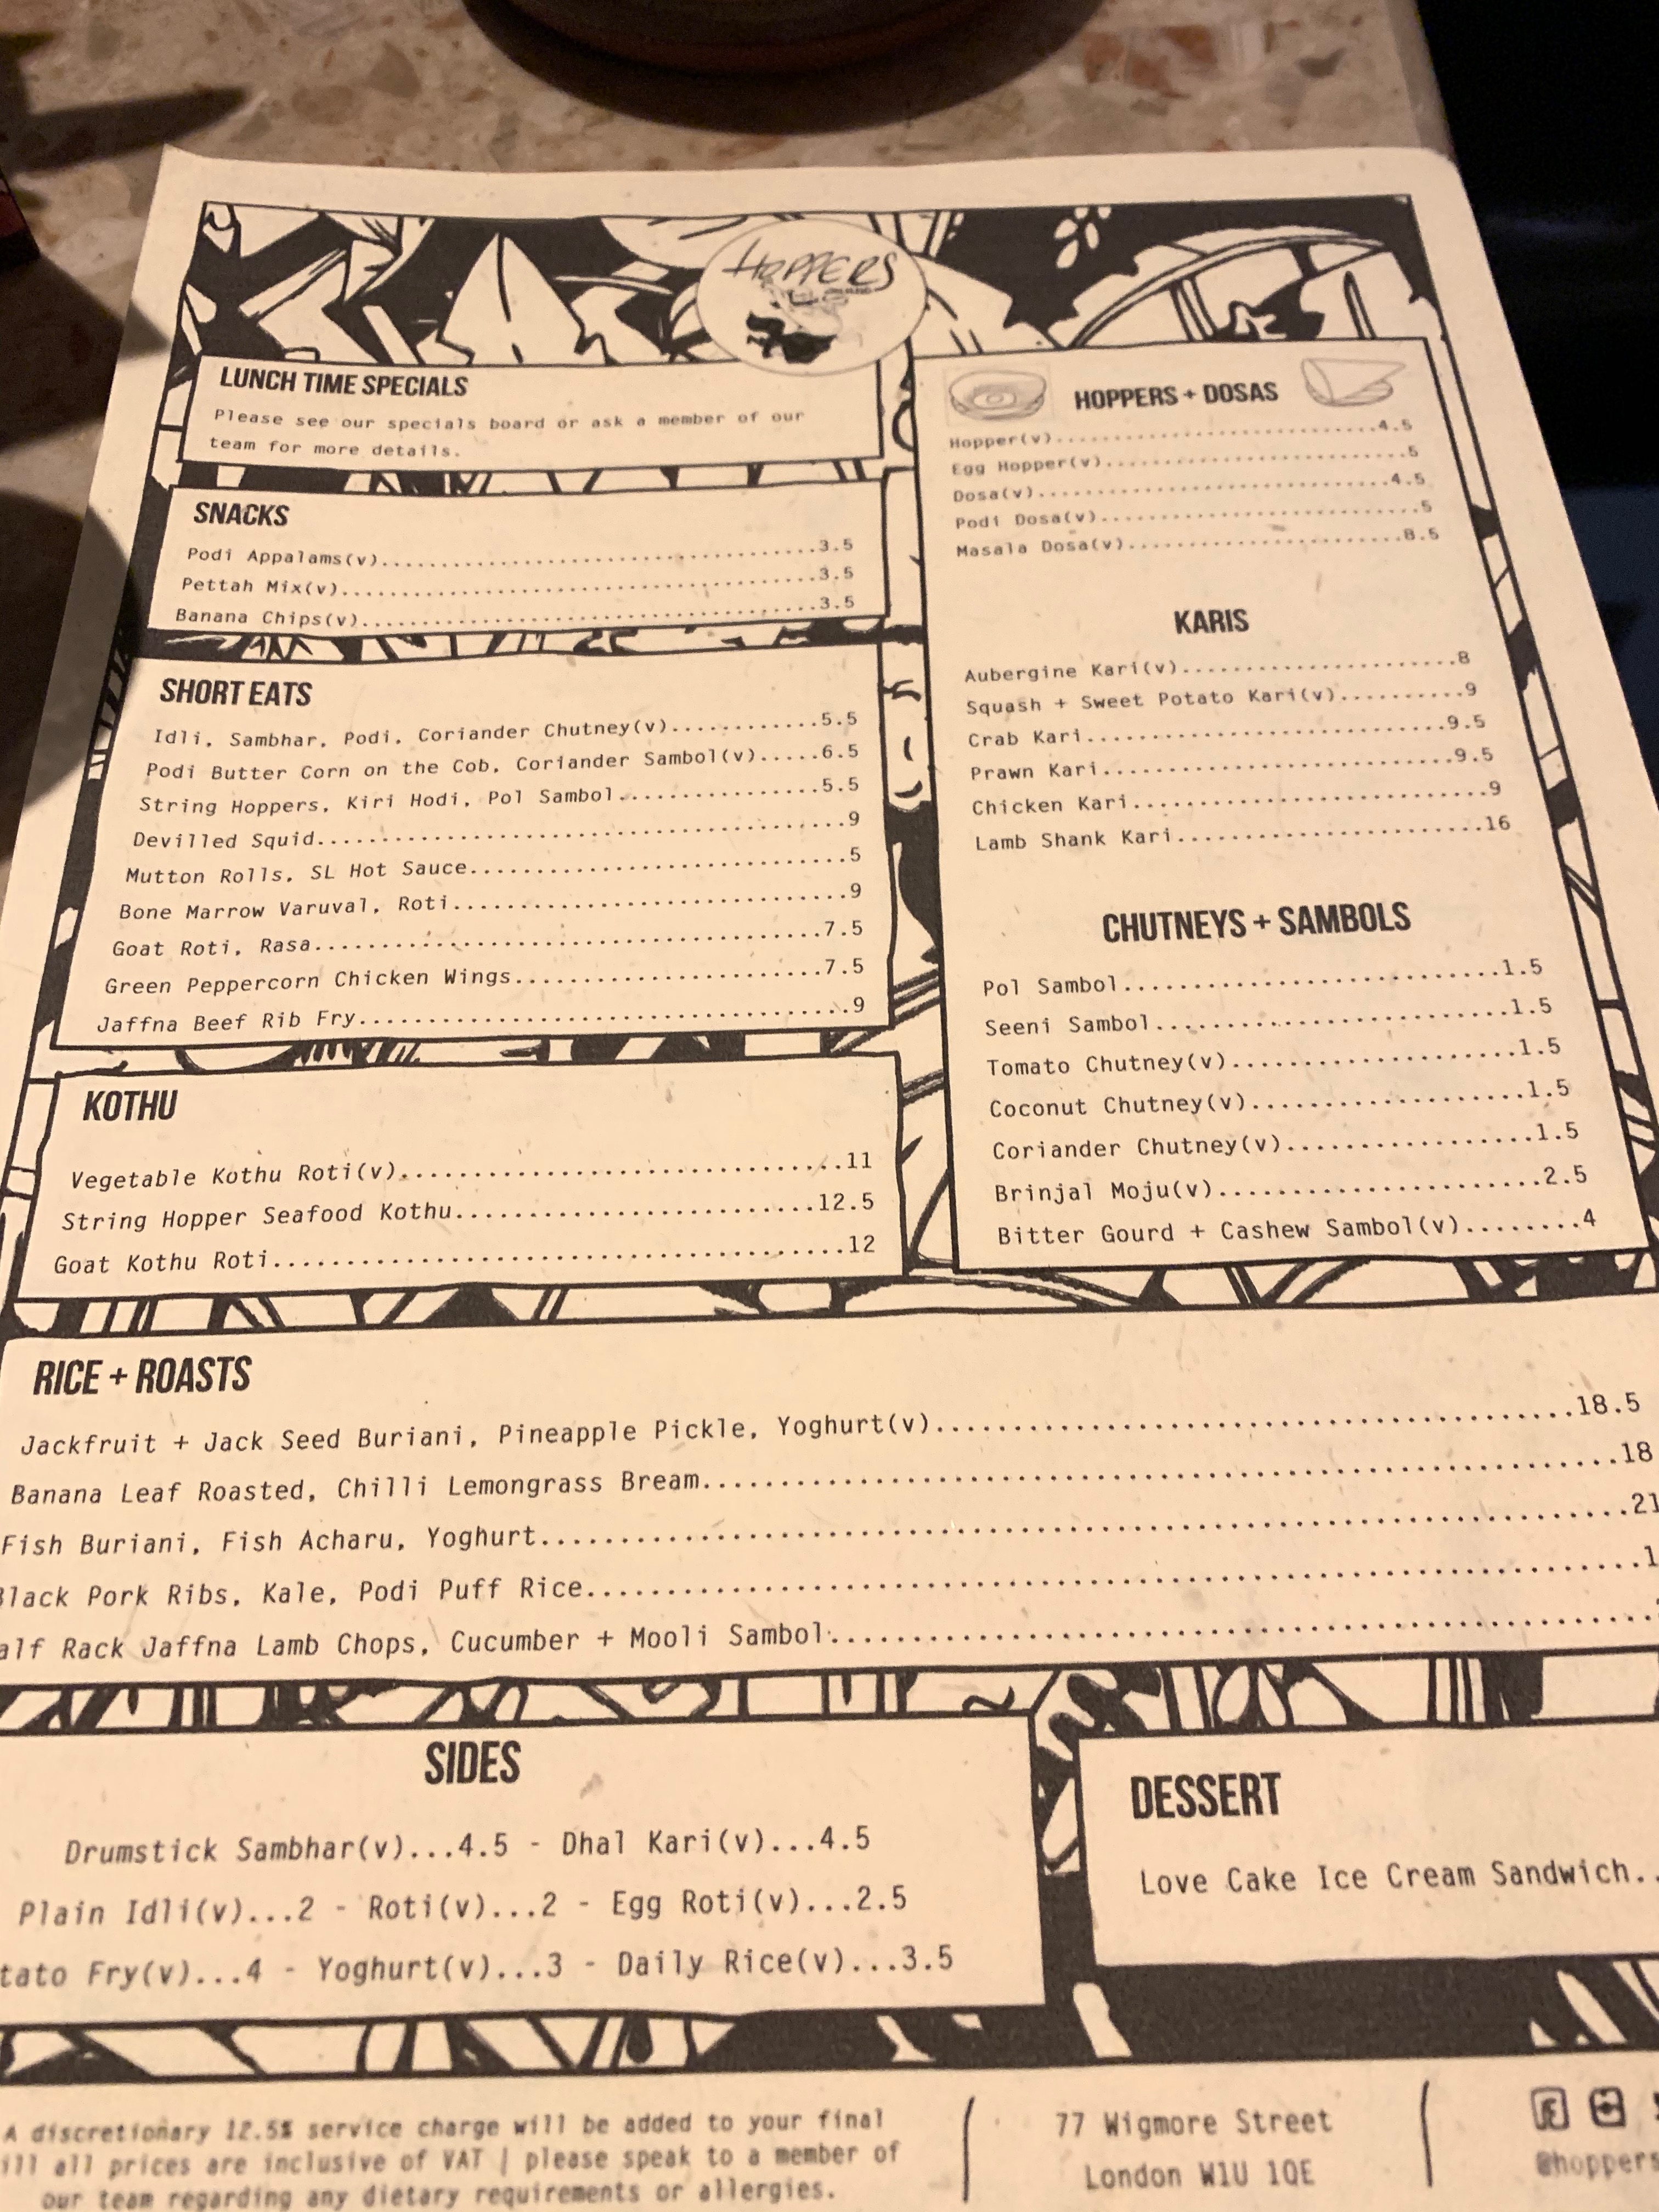 HOPPERS
LUNCH TIME SPECIALS
Please see our specials board or ask a member of our
team for more details.
SNACKS
Podi Appalams(v)...3.5
Pettah Mix(v)...3.5
Banana Chips(v)...3.5
SHORT EATS
Idli, Sambhar, Podi, Coriander Chutney(v)...5.5
Podi Butter Corn on the Cob, Coriander Sambol(v)...6.5
String Hoppers, Kiri Hodi, Pol Sambol...5.5
Devilled Squid...9
Mutton Rolls, SL Hot Sauce...5
Bone Marrow Varuval, Roti...9
Goat Roti, Rasa...7.5
Green Peppercorn Chicken Wings...7.5
Jaffna Beef Rib Fry...9
KOTHU
Vegetable Kothu Roti(v)...11
String Hopper Seafood Kothu...12.5
Goat Kothu Roti...12
HOPPERS + DOSAS
Hopper(v)...4.5
Egg Hopper(v)...5
Dosa(v)...4.5
Podi Dosa(v)...5
Masala Dosa(v)...8.5
KARIS
Aubergine Kari(v)...8
Squash + Sweet Potato Kari(v)...9
Crab Kari...9.5
Prawn Kari...9.5
Chicken Kari...9
Lamb Shank Kari...16
CHUTNEYS + SAMBOLS
Pol Sambol...1.5
Seeni Sambol...1.5
Tomato Chutney(v)...1.5
Coconut Chutney(v)...1.5
Coriander Chutney(v)...1.5
Brinjal Moju(v)...2.5
Bitter Gourd + Cashew Sambol(v)...4
RICE + ROASTS
Jackfruit + Jack Seed Buriani, Pineapple Pickle, Yoghurt(v)...18.5
Banana Leaf Roasted, Chilli Lemongrass Bream...18
Fish Buriani, Fish Acharu, Yoghurt...21
Black Pork Ribs, Kale, Podi Puff Rice...1
alf Rack Jaffna Lamb Chops, Cucumber + Mooli Sambol...
SIDES
Drumstick Sambhar(v)...4.5 - Dhal Kari(v)...4.5
Plain Idli(v)...2 - Roti(v)...2 - Egg Roti(v)...2.5
tato Fry(v)...4 - Yoghurt(v)...3 - Daily Rice(v)...3.5
DESSERT
Love Cake Ice Cream Sandwich..
A discretionary 12.5% service charge will be added to your final
ill all prices are inclusive of VAT | please speak to a member of
our team regarding any dietary requirements or allergies.
77 Wigmore Street
London W1U 1QE
@hoppers